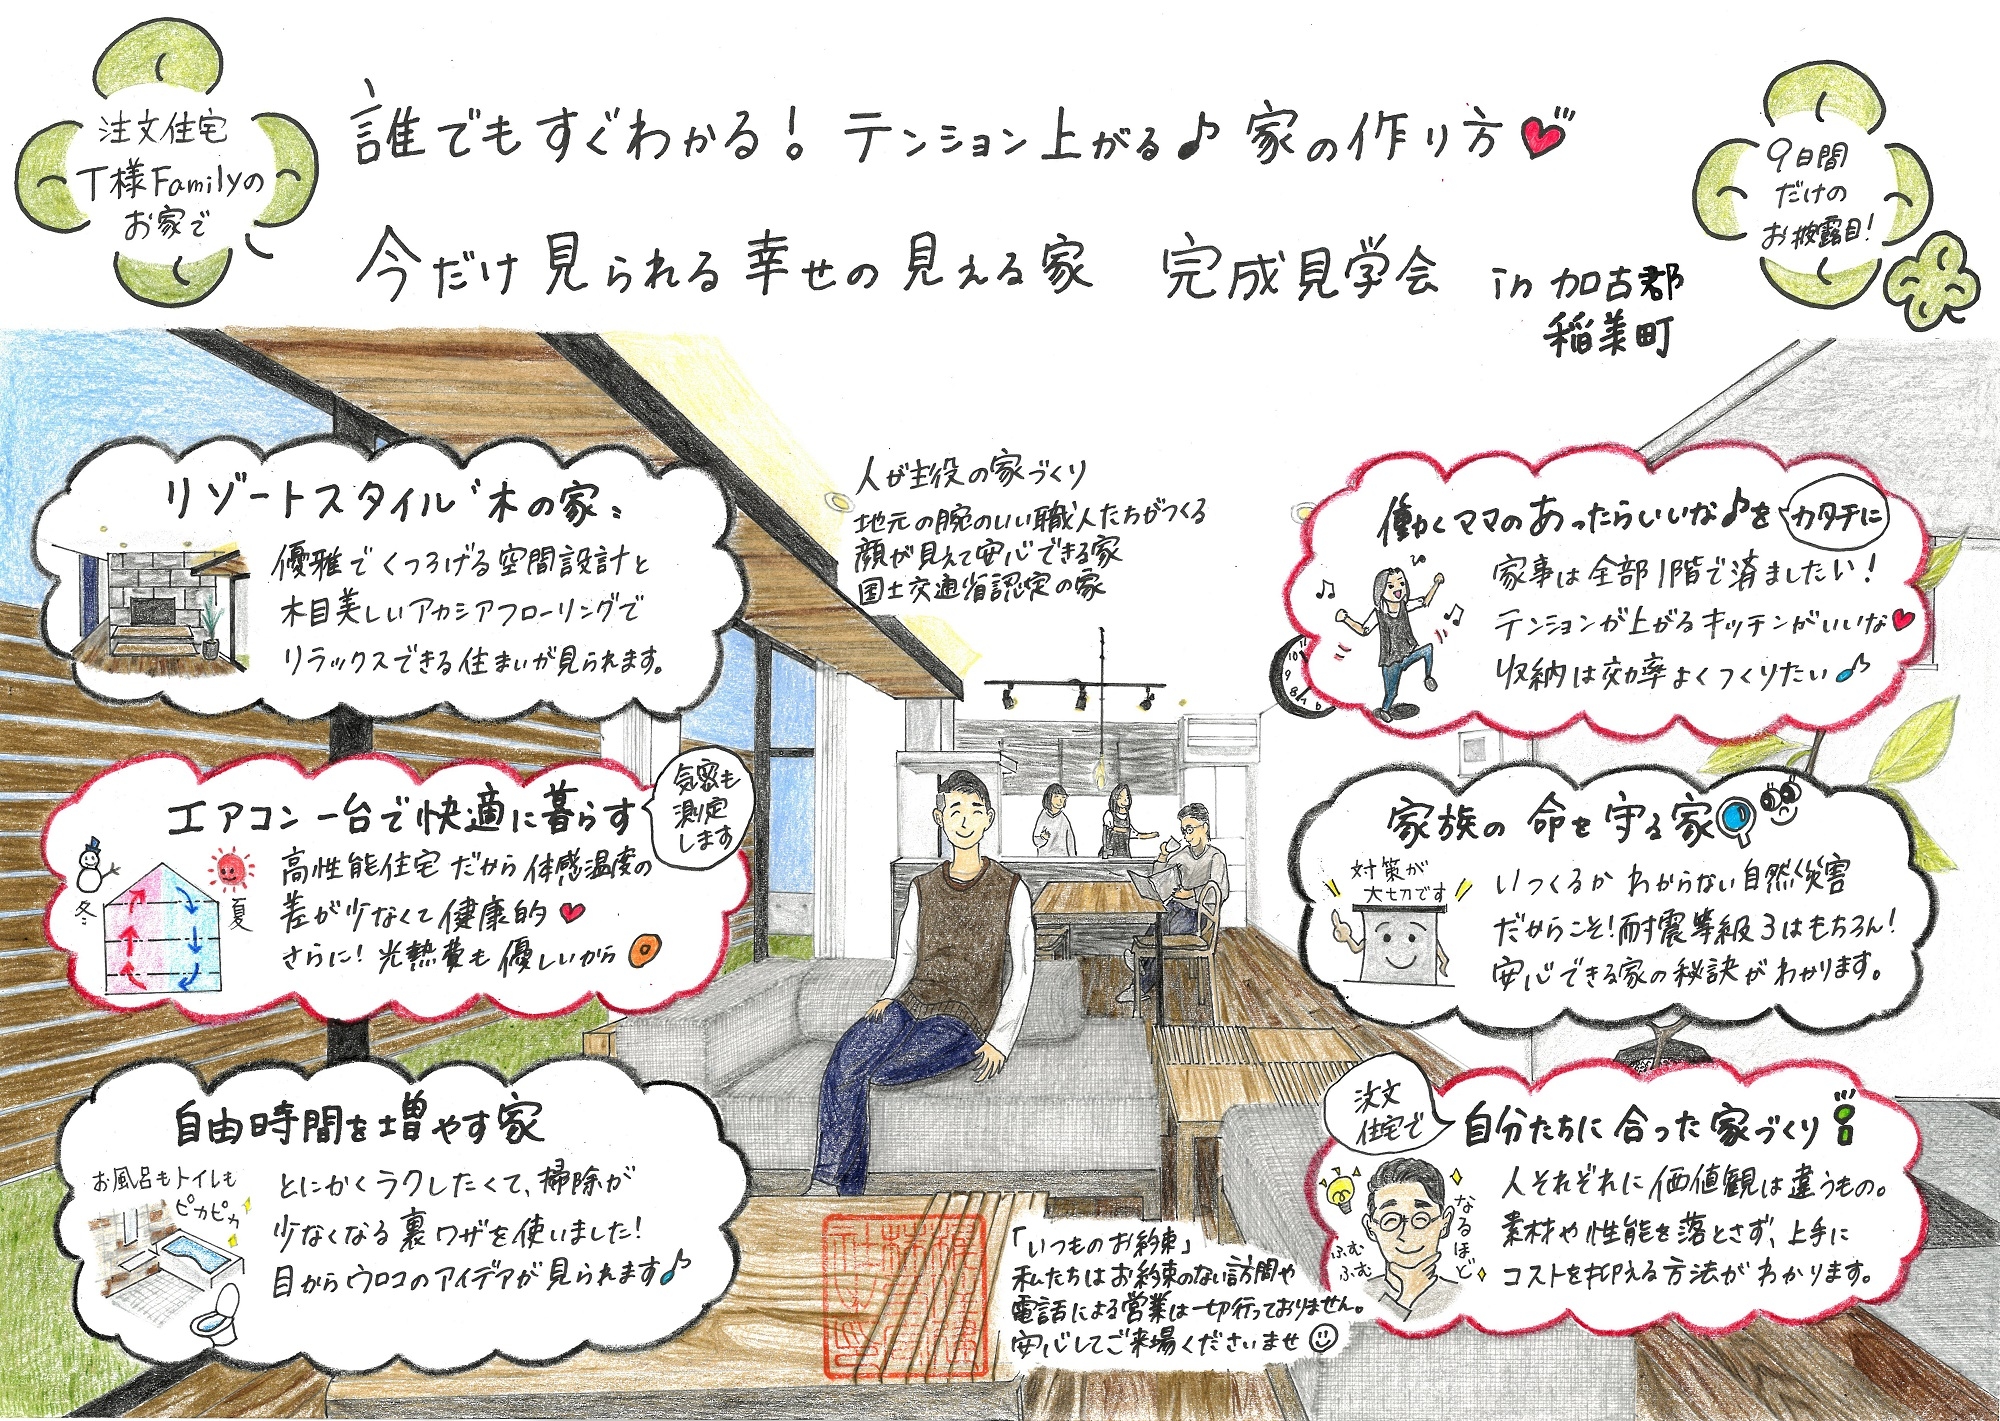 注文住宅
T様Familyの
お家で
誰でもすぐわかる！テンション上がる♪家の作り方♥
今だけ見られる幸せの見える家 完成見学会 in 加古郡
稲美町
9日間
だけの
お披露目！
リゾートスタイル〝木の家〟
優雅でくつろげる空間設計と
木目美しいアカシアフローリングで
リラックスできる住まいが見られます。
人が主役の家づくり
地元の腕のいい職人たちがつくる
顔が見えて安心できる家
国土交通省認定の家
働くママのあったらいいな♪を
カタチに
家事は全部1階で済ましたい！
テンションが上がるキッチンがいいな♥
収納は効率よくつくりたい♪
10
9
8
エアコン一台で快適に暮らす
気密も
測定
します
冬
夏
高性能住宅だから体感温度の
差が少なくて健康的♥
さらに！光熱費も優しいから
家族の命を守る家
対策が
大切です
いつくるかわからない自然災害
だからこそ！耐震等級3はもちろん！
安心できる家の秘訣がわかります。
自由時間を増やす家
お風呂もトイレも
ピカピカ
とにかくラクしたくて、掃除が
少なくなる裏ワザを使いました！
目からウロコのアイデアが見られます♪
「いつものお約束」
私たちはお約束のない訪問や
電話による営業は一切行っておりません。
安心してご来場くださいませ☺
注文
住宅で
自分たちに合った家づくり
なるほど
ふむ
ふむ
人それぞれに価値観は違うもの。
素材や性能を落とさず、上手に
コストを抑える方法がわかります。